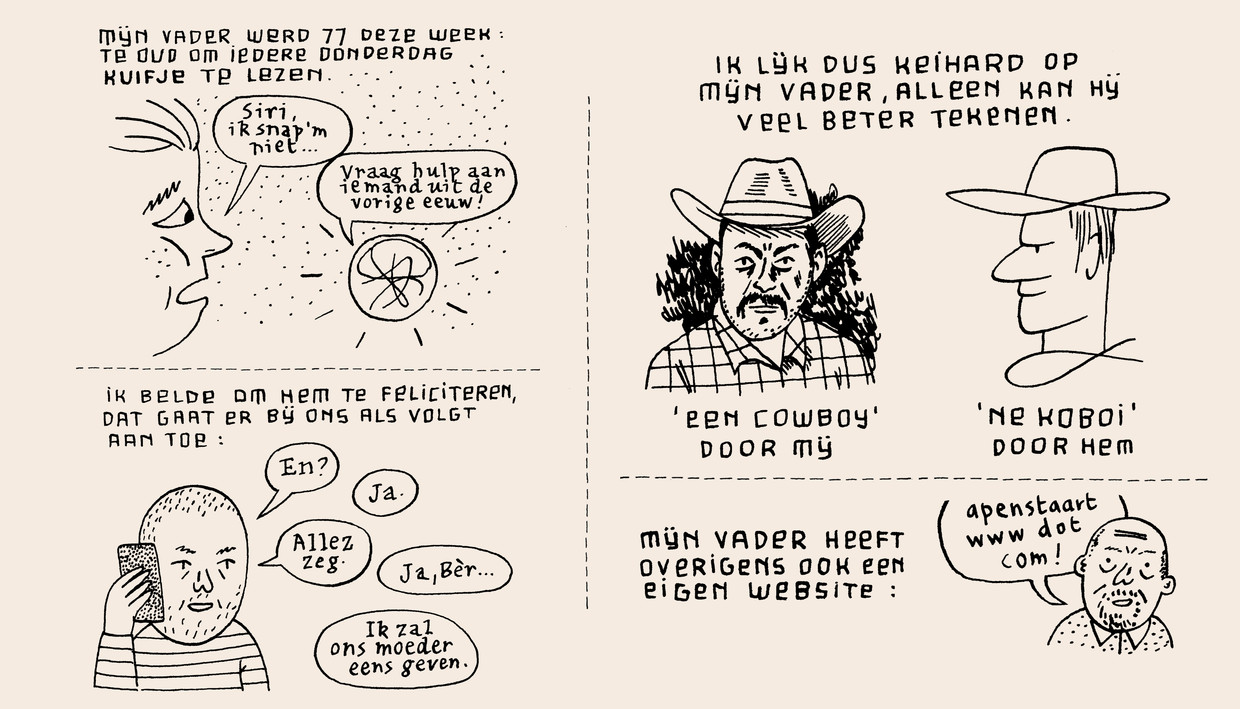 MIJN VADER WERD 77 DEZE WEEK:
TE OUD OM IEDERE DONDERDAG
KUIFJE TE LEZEN.
Siri,
ik snap'm
niet...
Vraag hulp aan
iemand uit de
vorige eeuw!
IK BELDE OM HEM TE FELICITEREN,
DAT GAAT ER BIJ ONS ALS VOLGT
AAN TOE:
En?
Ja.
Allez
zeg.
Ja, Bèr...
Ik zal
ons moeder
eens geven.
IK LIJK DUS KEIHARD OP
MIJN VADER, ALLEEN KAN HIJ
VEEL BETER TEKENEN.
'EEN COWBOY'
DOOR MIJ
'NE KOBOI'
DOOR HEM
MIJN VADER HEEFT
OVERIGENS OOK EEN
EIGEN WEBSITE:
apenstaart
www dot
com!